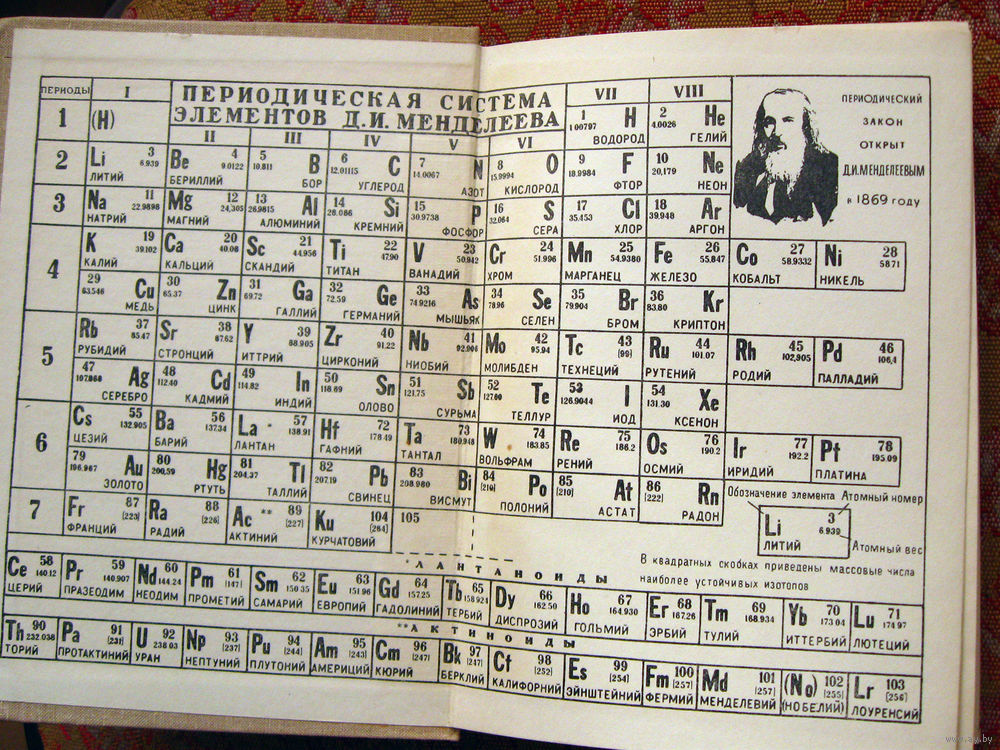 ПЕРИОДЫ I ПЕРИОДИЧЕСКАЯ СИСТЕМА VII VIII
ЭЛЕМЕНТОВ Д.И. МЕНДЕЛЕЕВА
II III IV V VI
ПЕРИОДИЧЕСКИЙ
ЗАКОН
ОТКРЫТ
Д.И.МЕНДЕЛЕЕВЫМ
в 1869 году
1 (H) 1 H 2 He
1.00797 4.0026
ВОДОРОД ГЕЛИЙ
2 Li 3 Be 4 5 B 6 C 7 N 8 O 9 F 10 Ne
6.939 9.0122 10.811 12.01115 14.0067 15.9994 18.9984 20,179
ЛИТИЙ БЕРИЛЛИЙ БОР УГЛЕРОД АЗОТ КИСЛОРОД ФТОР НЕОН
3 Na 11 Mg 12 13 Al 14 Si 15 P 16 S 17 Cl 18 Ar
22.9898 24,305 26.9815 28.086 30.9738 32.064 35.453 39.948
НАТРИЙ МАГНИЙ АЛЮМИНИЙ КРЕМНИЙ ФОСФОР СЕРА ХЛОР АРГОН
4 K 19 Ca 20 Sc 21 Ti 22 V 23 Cr 24 Mn 25 Fe 26 Co 27 Ni 28
39.102 40.08 44.956 47.90 50.942 51.996 54.9380 55.847 58.9332 58.71
КАЛИЙ КАЛЬЦИЙ СКАНДИЙ ТИТАН ВАНАДИЙ ХРОМ МАРГАНЕЦ ЖЕЛЕЗО КОБАЛЬТ НИКЕЛЬ
29 Cu 30 Zn 31 Ga 32 Ge 33 As 34 Se 35 Br 36 Kr
63.546 65.37 69.72 72.59 74.9216 78.96 79.904 83.80
МЕДЬ ЦИНК ГАЛЛИЙ ГЕРМАНИЙ МЫШЬЯК СЕЛЕН БРОМ КРИПТОН
5 Rb 37 Sr 38 Y 39 Zr 40 Nb 41 Mo 42 Tc 43 Ru 44 Rh 45 Pd 46
85.47 87.62 88.905 91.22 92.906 95.94 (99) 101.07 102,905 106,4
РУБИДИЙ СТРОНЦИЙ ИТТРИЙ ЦИРКОНИЙ НИОБИЙ МОЛИБДЕН ТЕХНЕЦИЙ РУТЕНИЙ РОДИЙ ПАЛЛАДИЙ
47 Ag 48 Cd 49 In 50 Sn 51 Sb 52 Te 53 I 54 Xe
107.868 112.40 114.82 118.69 121.75 127.60 126.9044 131.30
СЕРЕБРО КАДМИЙ ИНДИЙ ОЛОВО СУРЬМА ТЕЛЛУР ИОД КСЕНОН
6 Cs 55 Ba 56 La * 57 Hf 72 Ta 73 W 74 Re 75 Os 76 Ir 77 Pt 78
132.905 137.34 138.91 178.49 180.948 183.85 186.2 190.2 192.2 195.09
ЦЕЗИЙ БАРИЙ ЛАНТАН ГАФНИЙ ТАНТАЛ ВОЛЬФРАМ РЕНИЙ ОСМИЙ ИРИДИЙ ПЛАТИНА
79 Au 80 Hg 81 Tl 82 Pb 83 Bi 84 Po 85 At 86 Rn
196.967 200,59 204.37 207.19 208.980 [210] [210] [222]
ЗОЛОТО РТУТЬ ТАЛЛИЙ СВИНЕЦ ВИСМУТ ПОЛОНИЙ АСТАТ РАДОН
7 Fr 87 Ra 88 Ac ** 89 Ku 104 105
[223] [226] [227] [264]
ФРАНЦИЙ РАДИЙ АКТИНИЙ КУРЧАТОВИЙ
Обозначение элемента Атомный номер
Li 3
6.939
ЛИТИЙ
Атомный вес
В квадратных скобках приведены массовые числа
наиболее устойчивых изотопов
*ЛАНТАНОИДЫ
Ce 58 Pr 59 Nd 60 Pm 61 Sm 62 Eu 63 Gd 64 Tb 65 Dy 66 Ho 67 Er 68 Tm 69 Yb 70 Lu 71
140.12 140.907 144.24 [147] 150.35 151.96 157.25 158.924 162.50 164.930 167.26 168.934 173.04 174.97
ЦЕРИЙ ПРАЗЕОДИМ НЕОДИМ ПРОМЕТИЙ САМАРИЙ ЕВРОПИЙ ГАДОЛИНИЙ ТЕРБИЙ ДИСПРОЗИЙ ГОЛЬМИЙ ЭРБИЙ ТУЛИЙ ИТТЕРБИЙ ЛЮТЕЦИЙ
**АКТИНОИДЫ
Th 90 Pa 91 U 92 Np 93 Pu 94 Am 95 Cm 96 Bk 97 Cf 98 Es 99 Fm 100 Md 101 (No) 102 Lr 103
232.038 [231] 238.03 [237] [244] [243] [247] [247] [252] [254] [257] [257] [255] [256]
ТОРИЙ ПРОТАКТИНИЙ УРАН НЕПТУНИЙ ПЛУТОНИЙ АМЕРИЦИЙ КЮРИЙ БЕРКЛИЙ КАЛИФОРНИЙ ЭЙНШТЕЙНИЙ ФЕРМИЙ МЕНДЕЛЕВИЙ (НОБЕЛИЙ) ЛОУРЕНСИЙ
www.ay.by